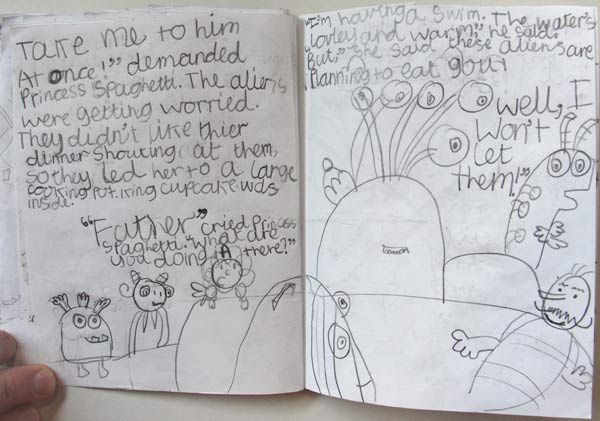 Take me to him
At once!" demanded
Princess Spaghetti. The aliens
were getting worried.
They didn't like thier
dinner shouting at them,
so they led her to a large
cooking pot. King cupcake was
inside.
"Father" cried Princess
Spaghetti. "what are
you doing in there?"
"I'm having a swim. The water's
lovley and warm," he said.
"But," she said "these aliens are
planning to eat you!
well, I
won't
let
them!"